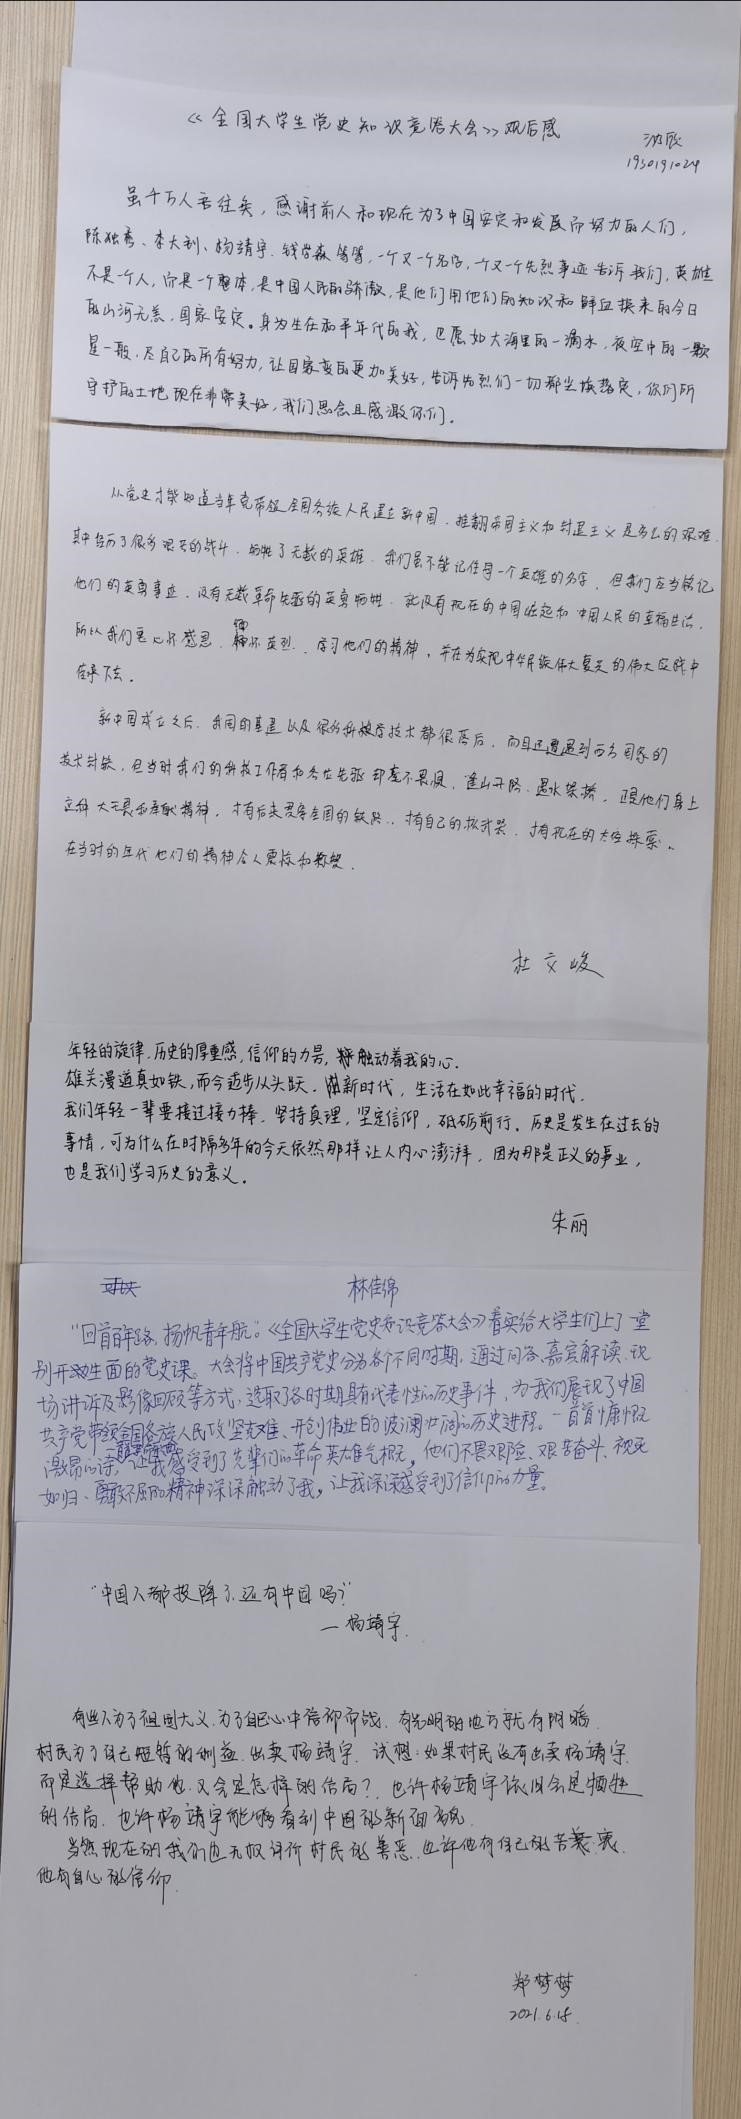 《全国大学生党史知识竞答大会》观后感
沈辰
1930191024
虽千万人吾往矣，感谢前人和现在为了中国安定和发展而努力的人们，
陈独秀、李大钊、杨靖宇、钱学森等等，一个又一个名字，一个又一个先烈事迹告诉我们，英雄
不是一个人，而是一个整体，是中国人民的骄傲，是他们用他们的知识和鲜血换来的今日
的山河无恙，国家安定。身为生在和平年代的我，也愿如大海里的一滴水，夜空中的一颗
星一般，尽自己的所有努力，让国家变的更加美好，告诉先烈们一切都尘埃落定，你们所
守护的土地现在非常美好，我们思念且感激你们。
从党史才能知道当年党带领全国各族人民建立新中国，推翻帝国主义和封建主义是多么的艰难
其中经历了很多艰苦的战斗，牺牲了无数的英雄，我们虽不能记住每一个英雄的名字，但我们应当铭记
他们的英勇事迹，没有无数革命先驱的英勇牺牲，就没有现在的中国崛起和中国人民的幸福生活，
所以我们要心怀感恩，缅怀英烈，学习他们的精神，并在为实现中华民族伟大复兴的伟大实践中
传承下去。
新中国成立之后，我国的基建以及很多科技技术都很落后，而且还遭遇到西方国家的
技术封锁，但当时我们的科技工作者和各位先驱却毫不畏惧，逢山开路，遇水架桥，正是他们身上
这种大无畏和奉献精神，才有后来贯穿全国的铁路，才有自己的核武器，才有现在的太空探索。
在当时的年代他们的精神令人震惊和称赞。
杜文峻
年轻的旋律，历史的厚重感，信仰的力量，触动着我的心。
雄关漫道真如铁，而今迈步从头跃。新时代，生活在如此幸福的时代，
我们年轻一辈要接过接力棒，坚持真理，坚定信仰，砥砺前行。历史是发生在过去的
事情，可为什么在时隔多年的今天依然那样让人内心澎湃，因为那是正义的事业，
也是我们学习历史的意义。
朱丽
林佳绵
“回首百年路，扬帆青年航。”《全国大学生党史知识竞答大会》着实给大学生们上了一堂
别开生面的党史课。大会将中国共产党史分为各个不同时期，通过问答、嘉宾解读、现
场讲诉及影像回顾等方式，选取了各时期具有代表性的历史事件，为我们展现了中国
共产党带领全国各族人民攻坚克难、开创伟业的波澜壮阔的历史进程。一首首慷慨
激昂的诗，让我感受到了先辈们的革命英雄气概。他们不畏艰险、艰苦奋斗、视死
如归、勇敢不屈的精神深深触动了我，让我深深感受到了信仰的力量。
“中国人都投降了，还有中国吗？”
—杨靖宇
有些人为了祖国大义，为了自己心中信仰而战，有光明的地方就有阴暗，
村民为了自己短暂的利益，出卖杨靖宇，试想：如果村民没有出卖杨靖宇
而是选择帮助他，又会是怎样的结局？也许杨靖宇依旧会是牺牲
的结局，也许杨靖宇能够看到中国的新面貌
当然现在的我们也无权评价村民的善恶，也许他有自己的苦衷，
他有自心的信仰
郑梦梦
2021.6.18